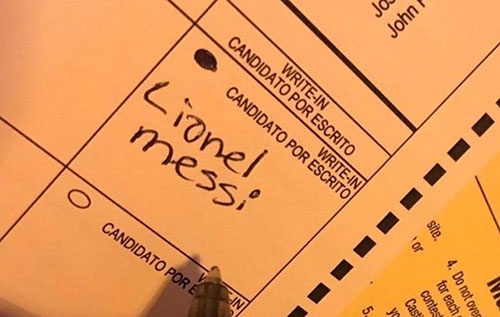 Jos
John
WRITE-IN
CANDIDATO POR ESCRITO
WRITE-IN
CANDIDATO POR ESCRITO
Lionel
messi
CANDIDATO POR
site.
or
4. Do not
for each
5.